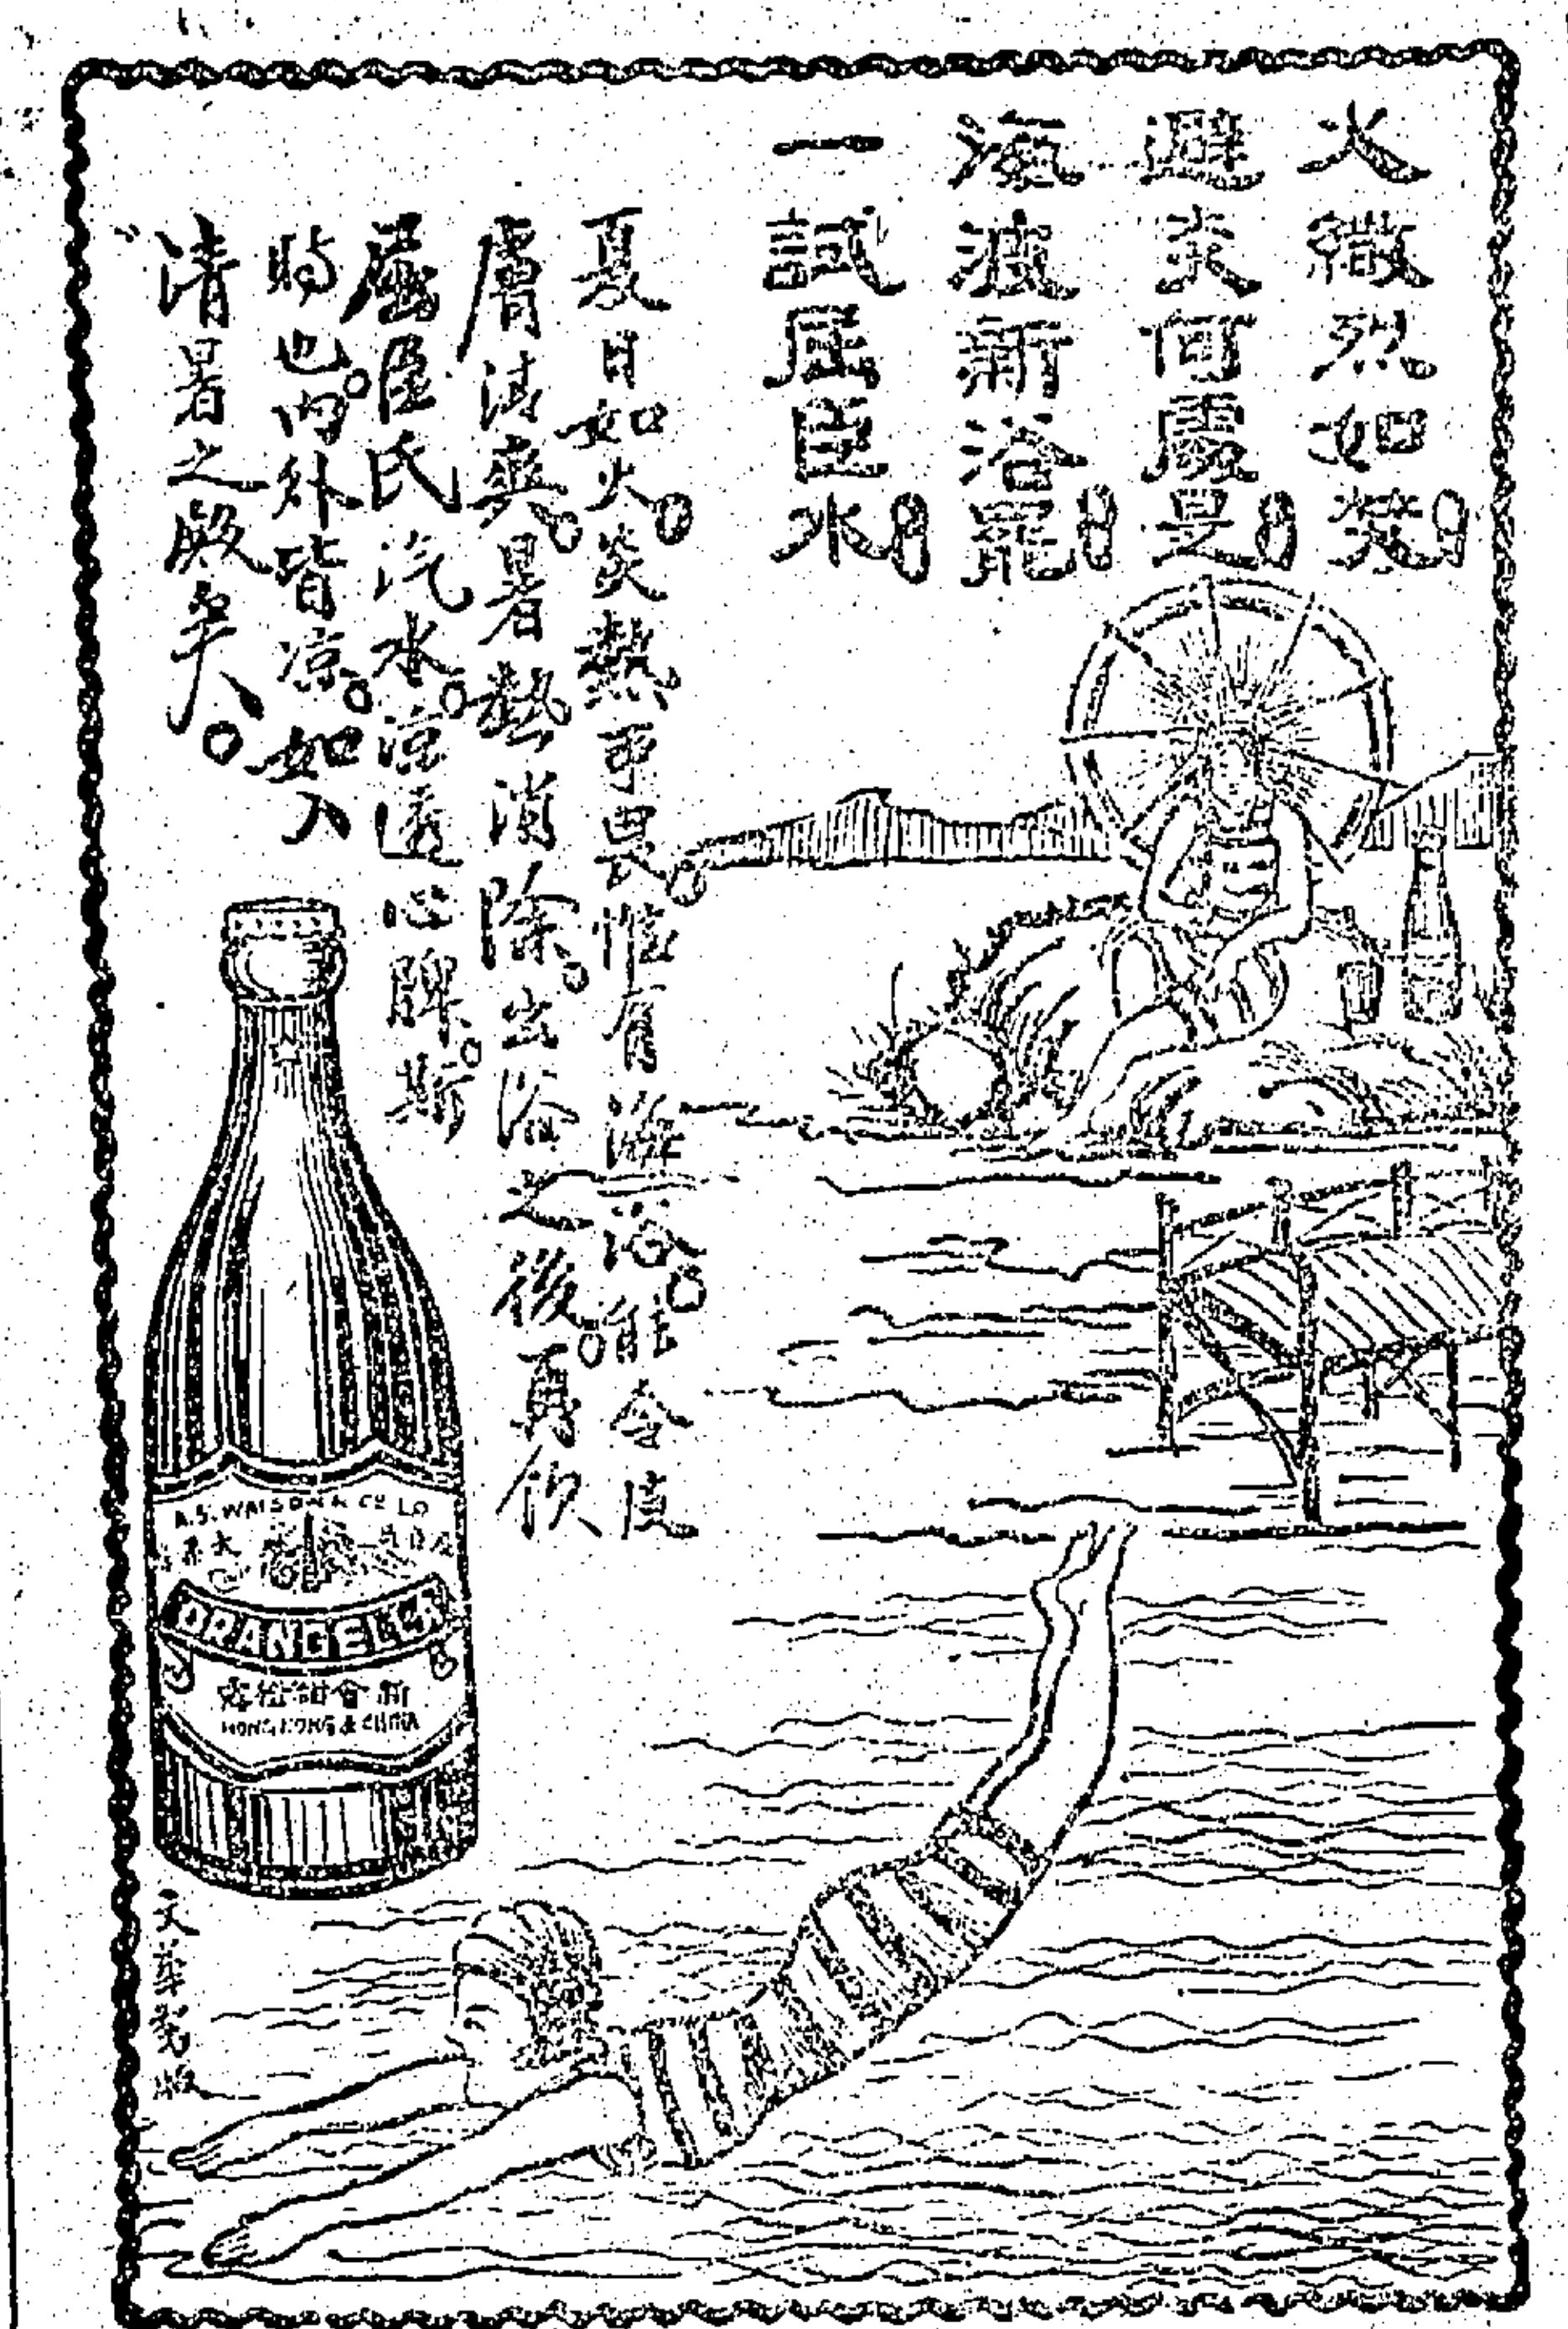 火繖烈如焚
避炎何處是
海波新浴罷
一試屈臣水
夏日如火。炎熱可畏。惟有海浴。能令皮
膚清爽。暑熱消除。出浴之後。再飲
屈臣氏汽水。涼透心脾。斯
時也。內外皆涼。如入
清暑之殿矣。
A.S. WATSON & CO LD
ORANGELLA
新會甜橙露
HONG KONG & CHINA